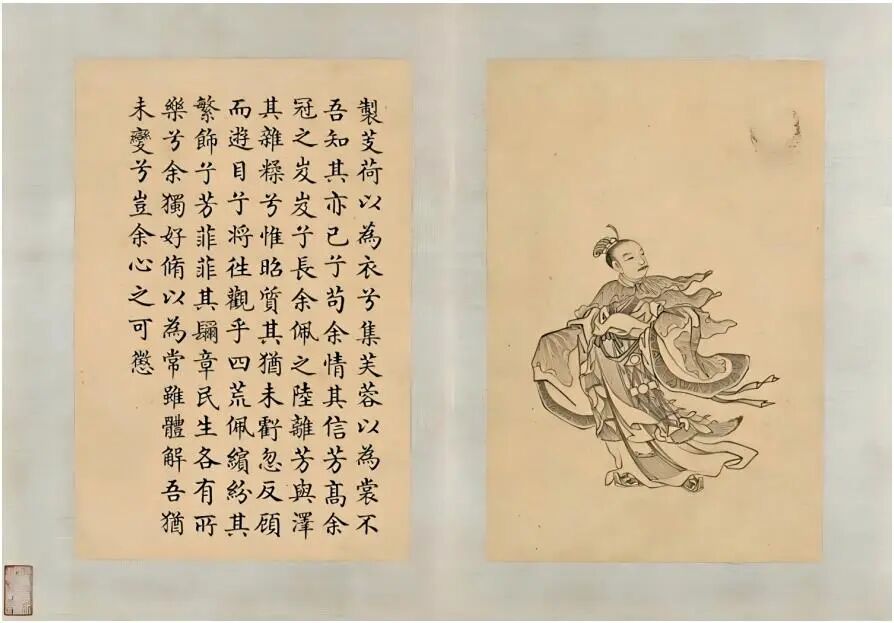 製芰荷以為衣兮集芙蓉以為裳不
吾知其亦已兮苟余情其信芳髙余
冠之岌岌兮長余佩之陸離芳與澤
其雜糅兮惟昭質其猶未虧忽反顧
而遊目兮將往觀乎四荒佩繽紛其
繁飾兮芳菲菲其彌章民生各有所
樂兮余獨好脩以為常雖體解吾猶
未變兮豈余心之可懲